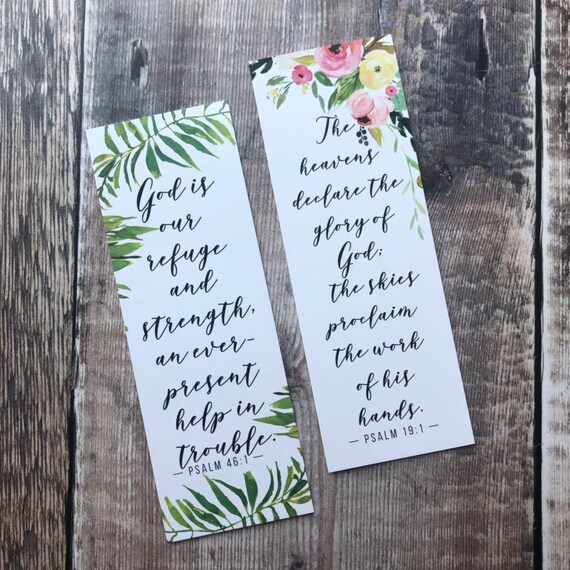 God is
our
refuge
and
strength,
an ever-
present
help in
trouble.
— PSALM 46:1 —
The
heavens
declare the
glory of
God;
the skies
proclaim
the work
of his
hands.
— PSALM 19:1 —